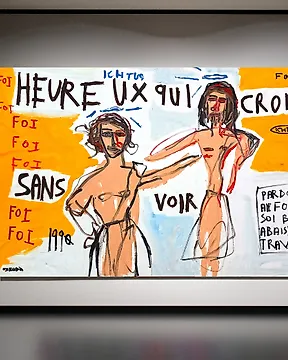 ICHTUS
FOI
HEUREUX QUI CROI
FOI
FOI
FOI
FOI
SANS
VOIR
FOI
FOI
1990
PARDO
SOI B
ABAIS
TRAV